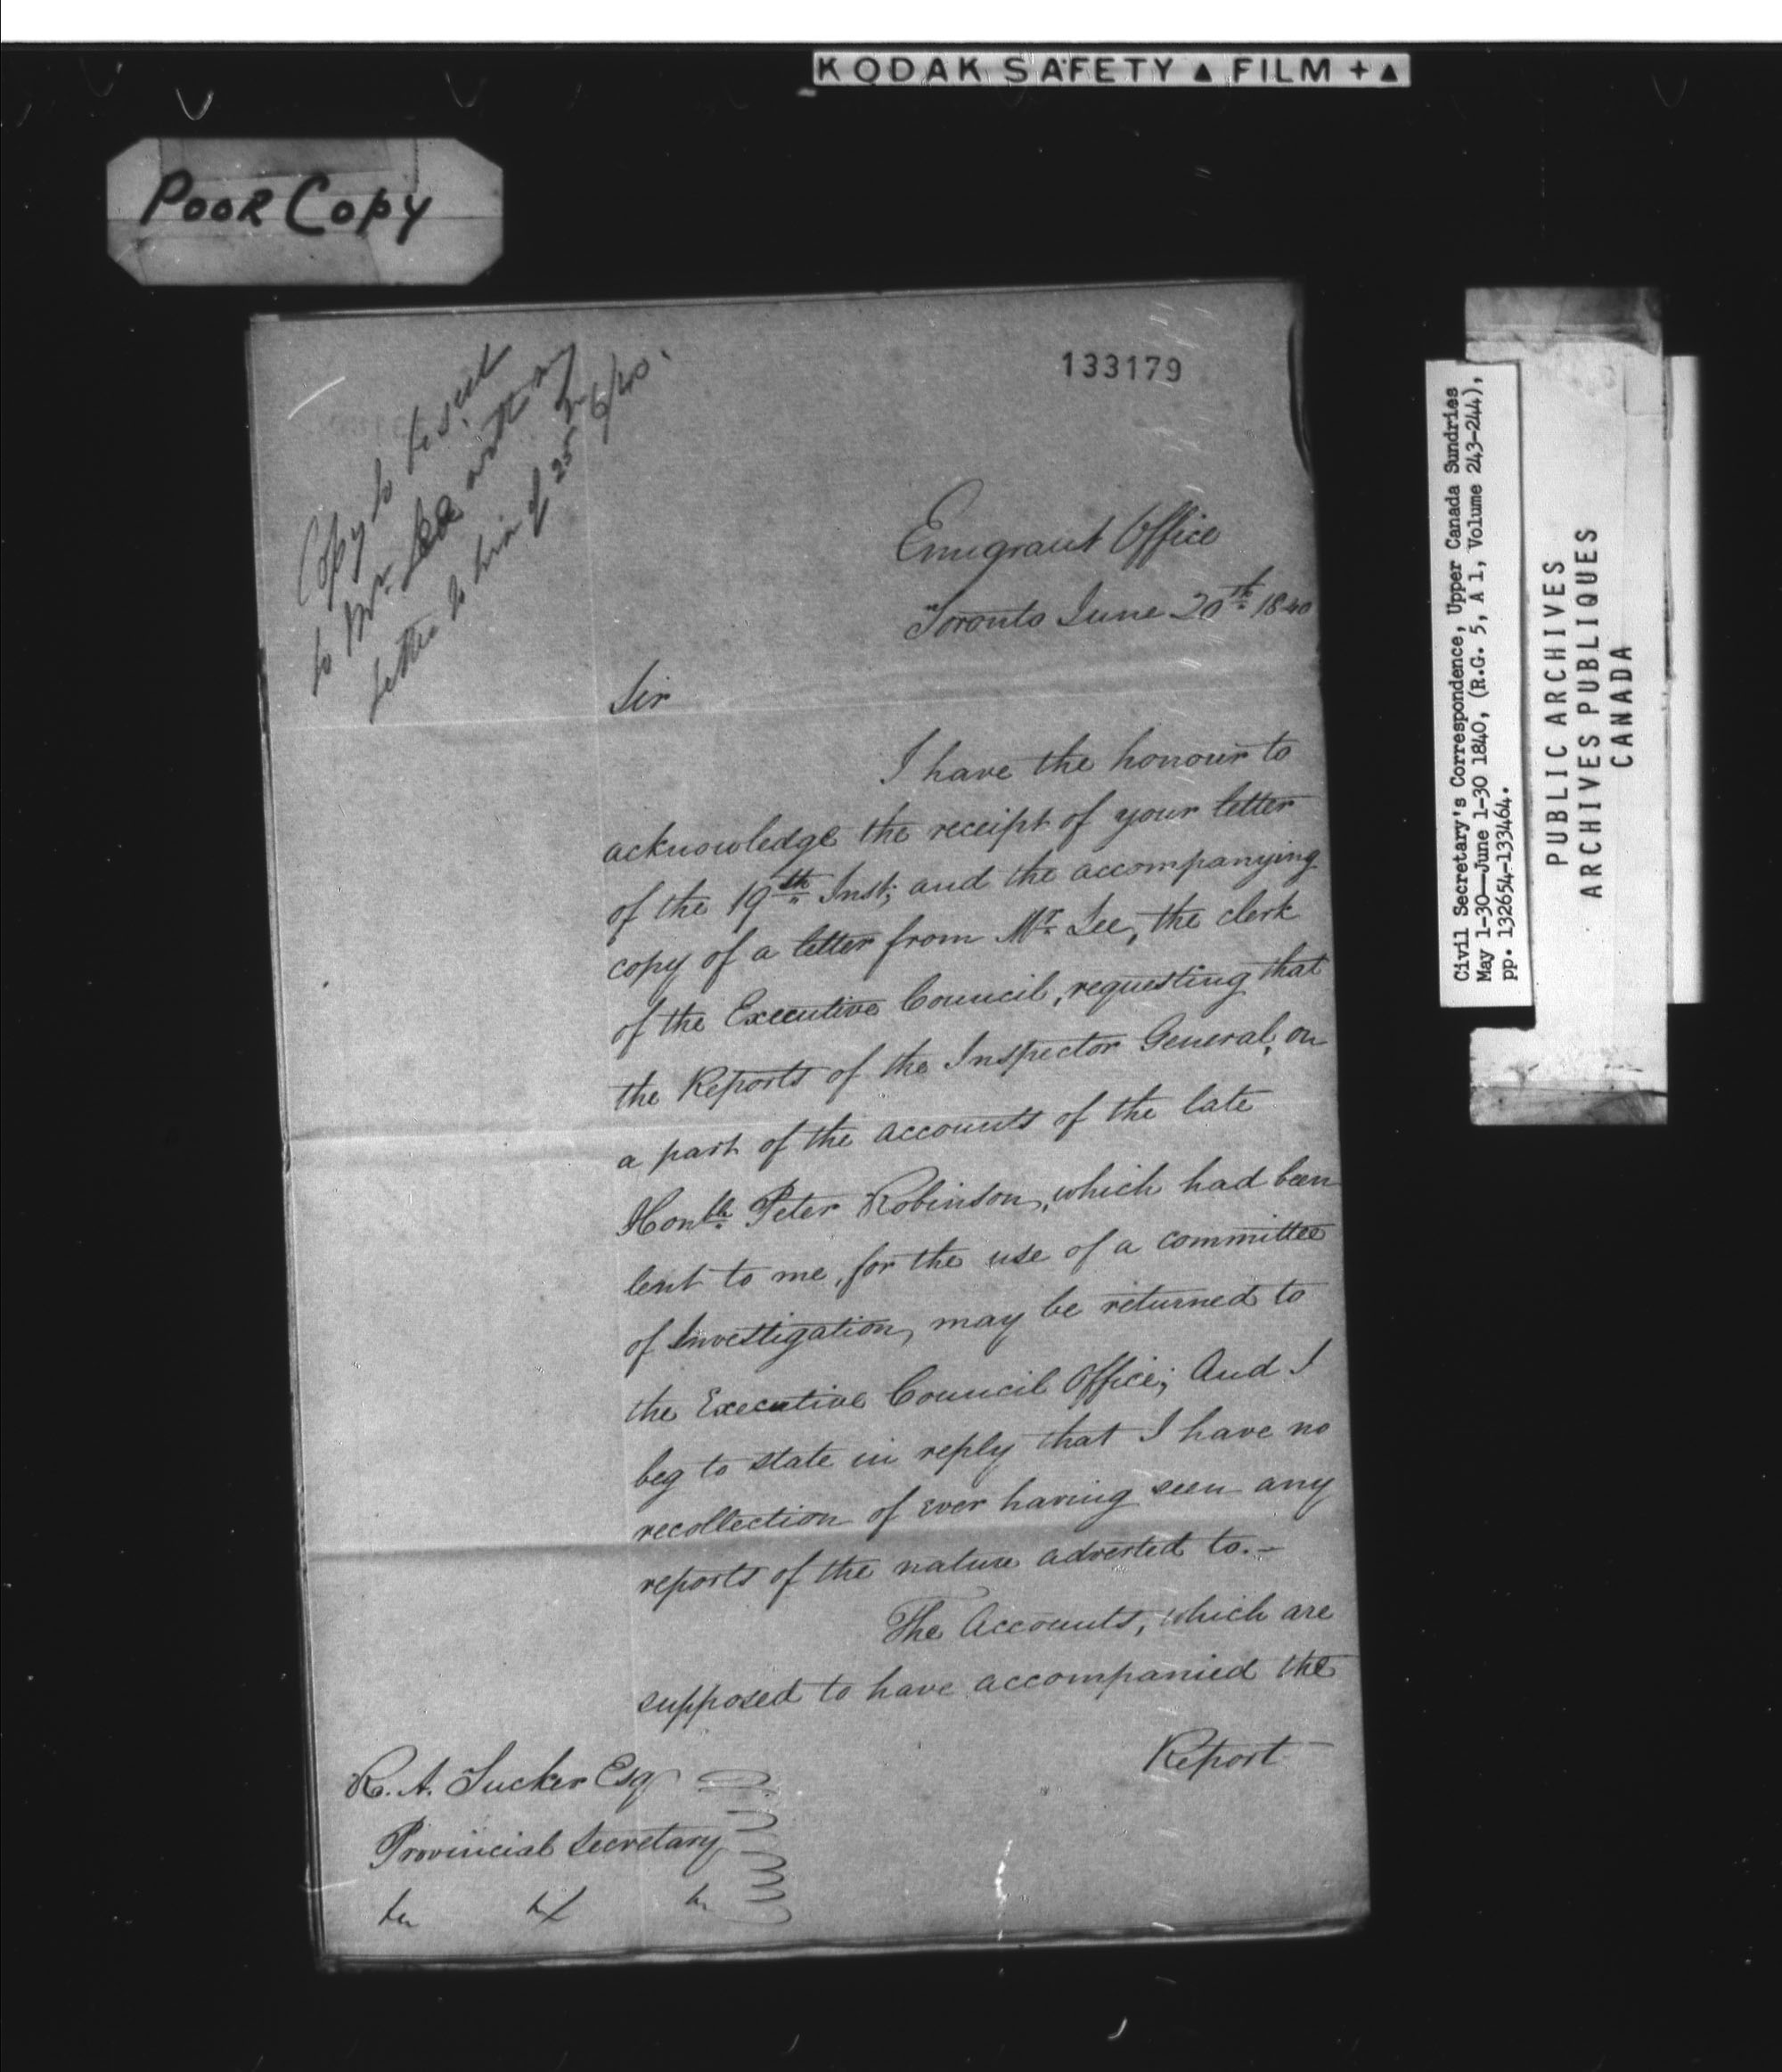 KODAK SAFETY ▲ FILM + ▲
POOR COPY
133179
Copy to be sent
to Mr. Lee with my
letter to him of 25 6/40.
Emigrant Office
Toronto June 20th 1840
Sir
I have the honour to
acknowledge the receipt of your letter
of the 19th Inst; and the accompanying
copy of a letter from Mr. Lee, the clerk
of the Executive Council, requesting that
the Reports of the Inspector General, on
a part of the accounts of the late
Honble. Peter Robinson, which had been
lent to me, for the use of a committee
of Investigation, may be returned to
the Executive Council Office; And I
beg to state in reply that I have no
recollection of ever having seen any
reports of the nature adverted to.–
The Accounts, which are
supposed to have accompanied the
Report
R. A. Tucker Esq
Provincial Secretary
Civil Secretary's Correspondence, Upper Canada Sundries
May 1-30—June 1-30 1840, (R.G. 5, A 1, Volume 243-244),
pp. 132654-133464.
PUBLIC ARCHIVES
ARCHIVES PUBLIQUES
CANADA